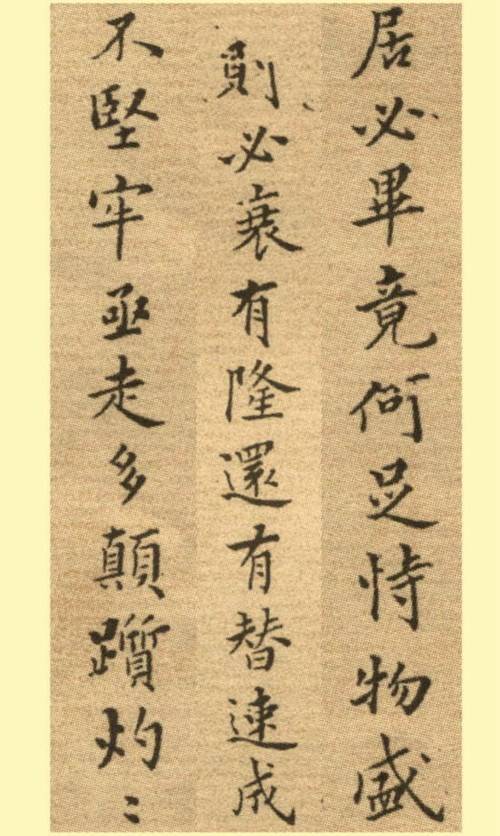 居必畢竟何足恃物盛
則必衰有隆還有替速成
不堅牢亟走多顛躓灼〻